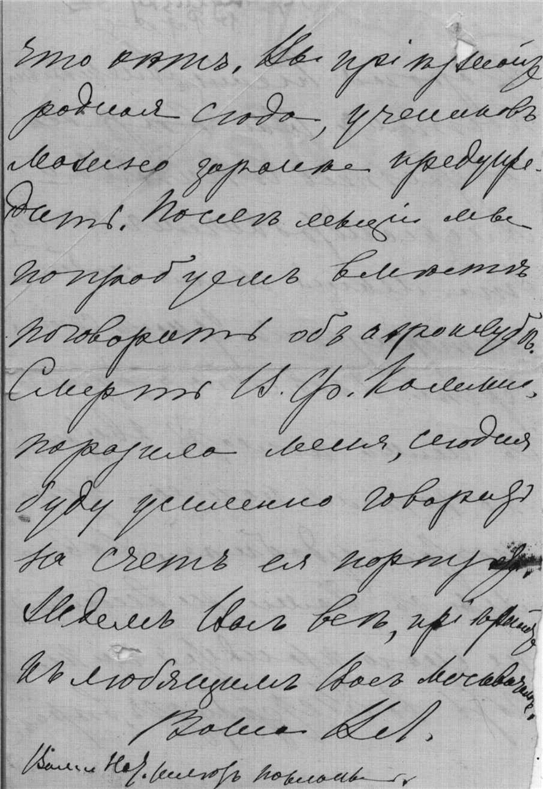 что нѣтъ. Вы пріѣзжайте
родная сюда, учениковъ
можно заранѣе предупре-
дить. Послѣ лекціи мы
попробуемъ вмѣстѣ
поговорить объ
Смерть В. Ф. Комми.
поразила меня, сегодня
буду усиленно говорить
на счетъ ея портр.
Ждемъ Васъ всѣ, пріѣзжайте
къ любящимъ Васъ москвичамъ.
Ваша
поклонъ